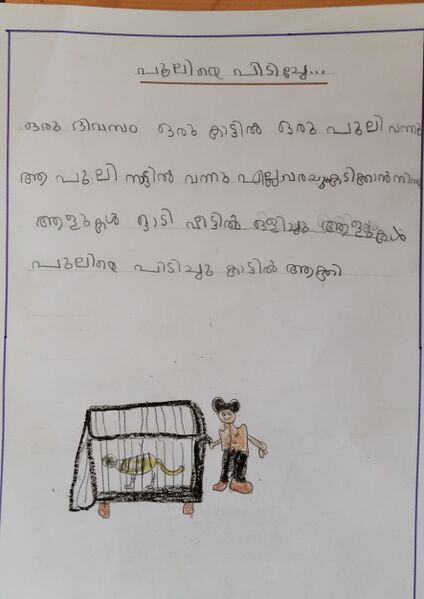 പുലിയെ പിടിച്ചേ...
ഒരു ദിവസം ഒരു കാട്ടിൽ ഒരു പുലി വന്നു
ആ പുലി നാട്ടിൽ വന്നു എല്ലാവരെയും കടിക്കാൻ നിന്നു
ആളുകൾ ഓടി വീട്ടിൽ ഒളിച്ചു ആളുകൾ
പുലിയെ പിടിച്ചു കാട്ടിൽ ആക്കി